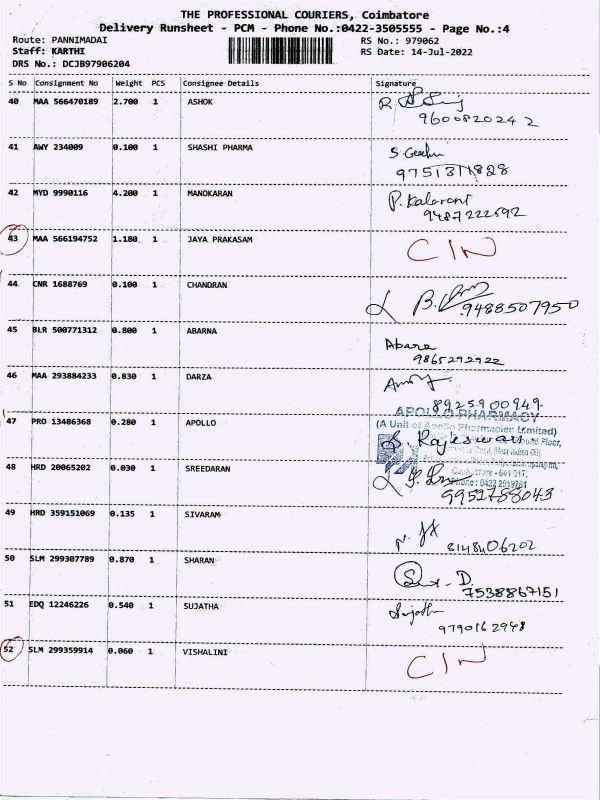 THE PROFESSIONAL COURIERS, Coimbatore
Delivery Runsheet - PCM - Phone No.:0422-3505555 - Page No.:4
Route: PANNIMADAI RS No.: 979062
Staff: KARTHI RS Date: 14-Jul-2022
DRS No.: DCJB97906204
S No Consignment No Weight PCS Consignee Details Signature
40 MAA 566470189 2.700 1 ASHOK
9600820242
41 AWY 234009 0.100 1 SHASHI PHARMA S. Geetha
9751311828
42 MYD 9990116 4.200 1 MANOKARAN P. Kalarani
9487222592
43 MAA 566194752 1.180 1 JAYA PRAKASAM CIN
44 CNR 1688769 0.100 1 CHANDRAN
9488507950
45 BLR 500771312 0.800 1 ABARNA Abara
9865292922
46 MAA 293884233 0.830 1 DARZA
8925900949
APOLLO PHARMACY
(A Unit of Apollo Pharmacies Limited)
47 PRO 13486368 0.280 1 APOLLO S. Rajeswari
48 HRD 20065202 0.030 1 SREEDARAN
Phone : 0422 2919761
9952788043
49 HRD 359151069 0.135 1 SIVARAM
8148406202
50 SLM 299307789 0.870 1 SHARAN
7538867151
51 EDQ 12246226 0.540 1 SUJATHA Sujatha
9790162948
52 SLM 299359914 0.060 1 VISHALINI CIN